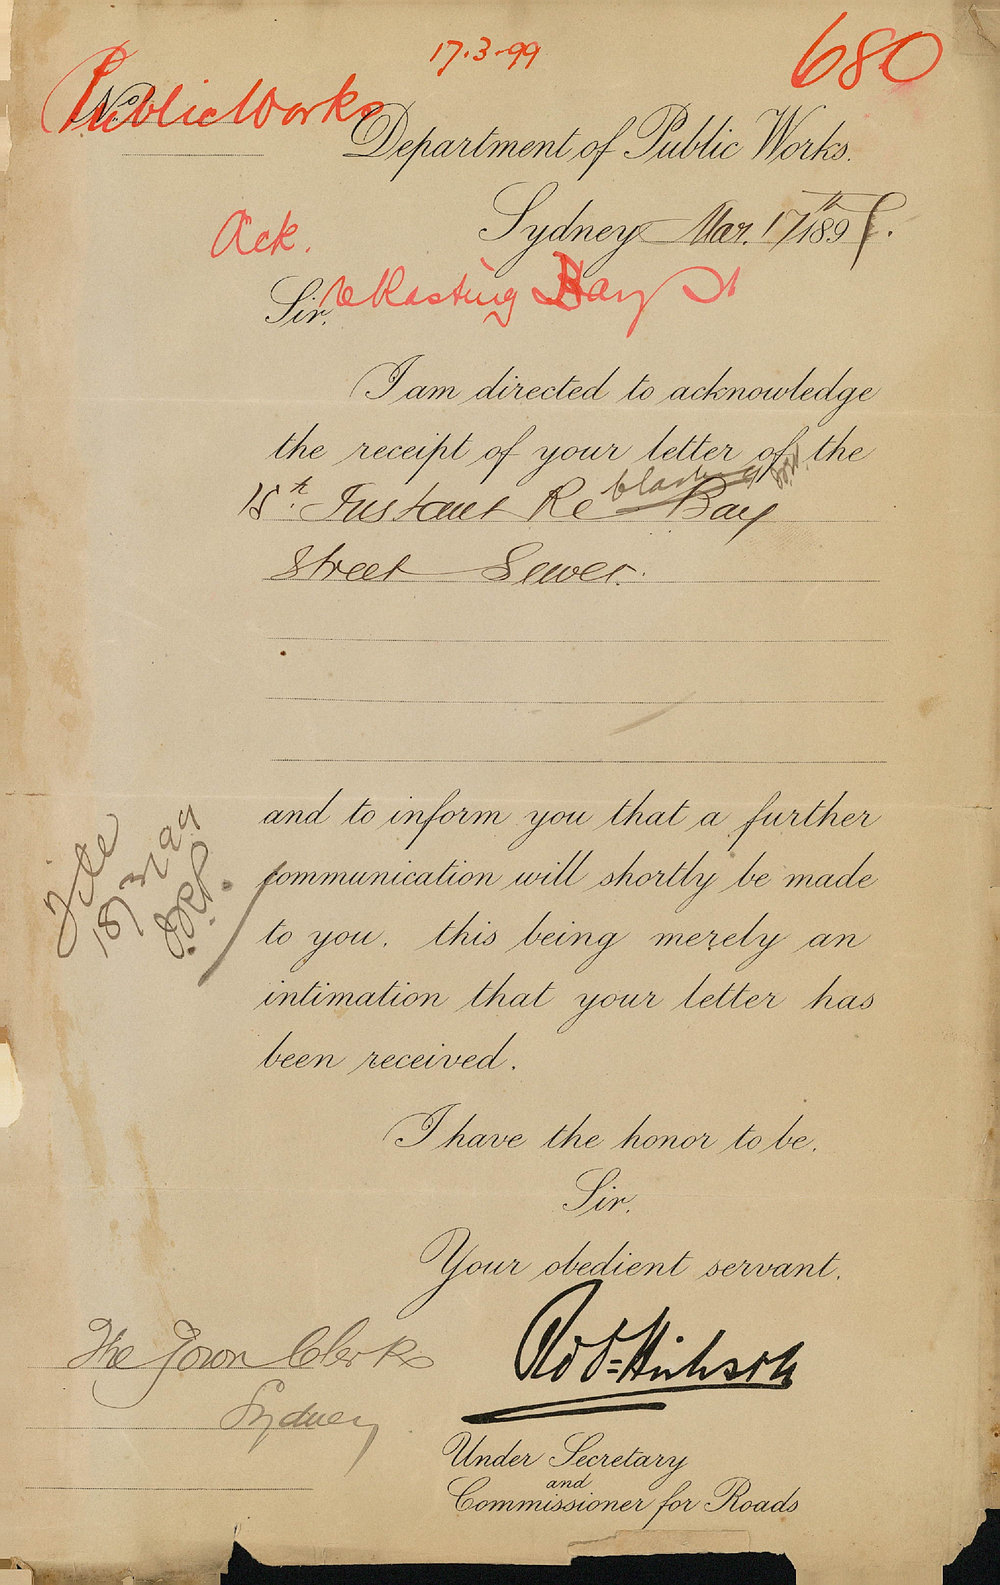 17.3.99
680
Public Works
No.
Department of Public Works.
Sydney Mar. 17th 189
Ack.
re Blasting Bay St
Sir,
I am directed to acknowledge
the receipt of your letter of the
blasting
15th Instant Re Bay
Street Sewer.
and to inform you that a further
communication will shortly be made
to you, this being merely an
intimation that your letter has
been received.
File
18/3/99
I have the honor to be,
Sir,
Your obedient servant,
The Town Clerk
Sydney
Under Secretary
and
Commissioner for Roads